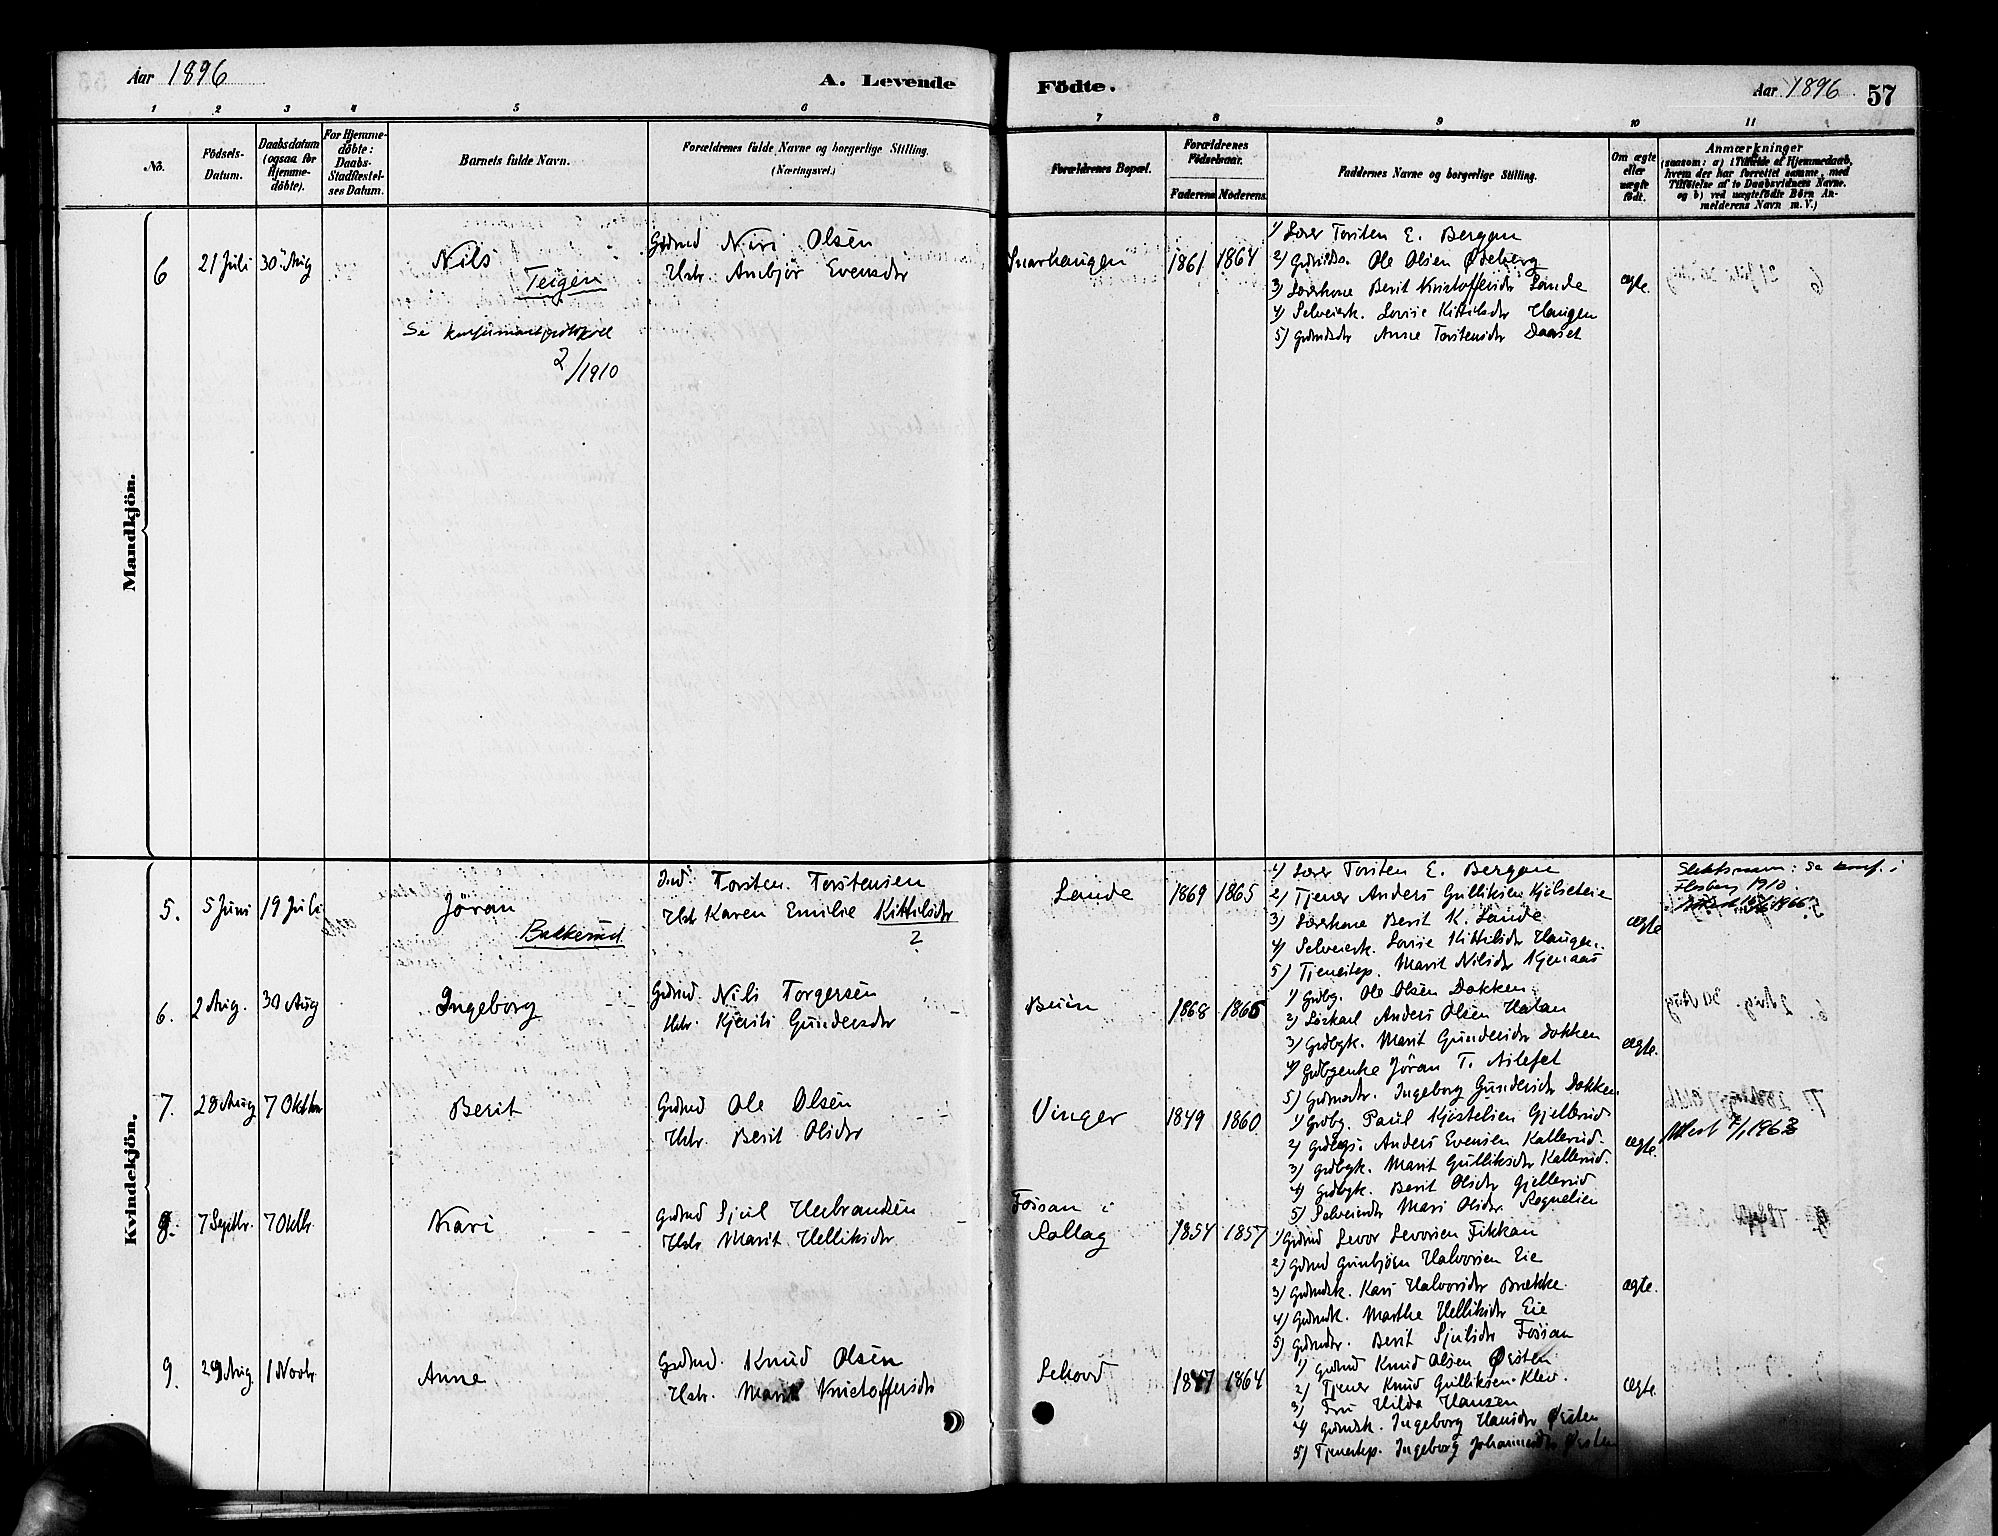 Aar 1896
A. Levende
Födte.
Aar 1896
57
1 2 3 4 5 6 7 8 9 10 11
No.
Födsels-
Datum.
Daabsdatum
(ogsaa for
Hjemme-
døbte).
For Hjemme-
døbte:
Daabs-
Stadfæstel-
ses Datum.
Barnets fulde Navn.
Forældrenes fulde Navne og borgerlige Stilling.
(Næringsvei.)
Forældrenes Bopæl.
Forældrenes
Födselsaar.
Faderens Moderens
Faddernes Navne og borgerlige Stilling.
Om ægte
eller
uægte
født.
Anmærkninger
(saasom: a) i Tilfælde af Hjemmedaab,
hvem der har forrettet samme, med
Tilföielse af to Daabsvidners Navne.
og b) ved uægtefödte Börn An-
melderens Navn m. V.)
Mandkjön.
6
21 Juli
30 Aug
Nils
Teigen
Se
2/1910
Gdmd Olsen
Hstr. Evensdtr
1861
1864
1) Lærer Torsten E. Bergan
2) Ole Olsen Ødeberg
3) Lærerkone Berit Kristoffersdr Lande
4) Selveierk. Lovise Kittilsdr Haugen
5) Gdmdsdr Anne Torstensdr Daaset
ægte.
Kvindekjön.
5.
5 Juni
19 Juli
Jöran
Bakkerud
Ind. Torsten Torstensen
Hstr Karen Emilie Kittilsdr
2
Lande
1869
1865
1) Lærer Torsten E. Bergan
2) Tjener Anders Gulliksen Kjelseteie
3) Lærerkone Berit K. Lande
4) Selveierk. Lovise Kittilsdr Haugen.
5) Tjenestep. Marit Nilsdr Kjenaas
ægte
Slektsnavn: Se konf. i
Flesberg 1910.
6.
2 Aug.
30 Aug
Ingeborg
Gdmd. Nils Torgersen
Hstr. Kjersti Gundersdr
Buin
1868
1865
1) Gdbg. Ole Olsen Dokken
2) Løskarl Anders Olsen
3) Gdbgk. Marit Gundersdr Dokken
4) Gdbgenke Jöran T.
5) Gdmdsdr. Ingeborg Gundersdr Dokken
ægte.
7.
28 Aug
7 Oktbr
Berit
Gdmd Ole Olsen
Hstr. Berit Olsdr
Vinger
1849
1860
1) Gdbg. Paul Kjostelsen Gjellerud
2) Gdbgs. Anders Evensen Kallerud.
3) Gdbgk. Marit Gulliksdr Kallerud.
4) Gdbgk. Berit Olsdr Gjellerud
5) Selveierdr Mari Olsdr
ægte.
Attest 1963
8.
7 Septbr.
7 Oktbr.
Kari
Gdmd Sjul Herbrandsen
Hstr Marit Helliksdr
Fossan i
Rollag
1854
1857
1) Gdmd Levor Levorsen Fikkan
2) Gdmd Gunbjörn Halvorsen Eie
3) Gdmdsk. Kari Halvorsdr Brække
4) Gdmdk. Marthe Helliksdr Eie
5) Gdmdsdr. Berit Sjulsdr Fossan
ægte.
9.
29 Aug.
1 Novbr.
Anne
Gdmd. Knud Olsen
Hstr. Marit Kristoffersdr
1847
1864
1) Gdmd Knud Olsen Østen
2) Tjener Knud Gulliksen Klev.
3) Fru Hilda Hansen
4) Gdmdsk. Ingeborg Hansdr Østen
5) Tjenestep. Ingeborg Johannesdr Østen
ægte.